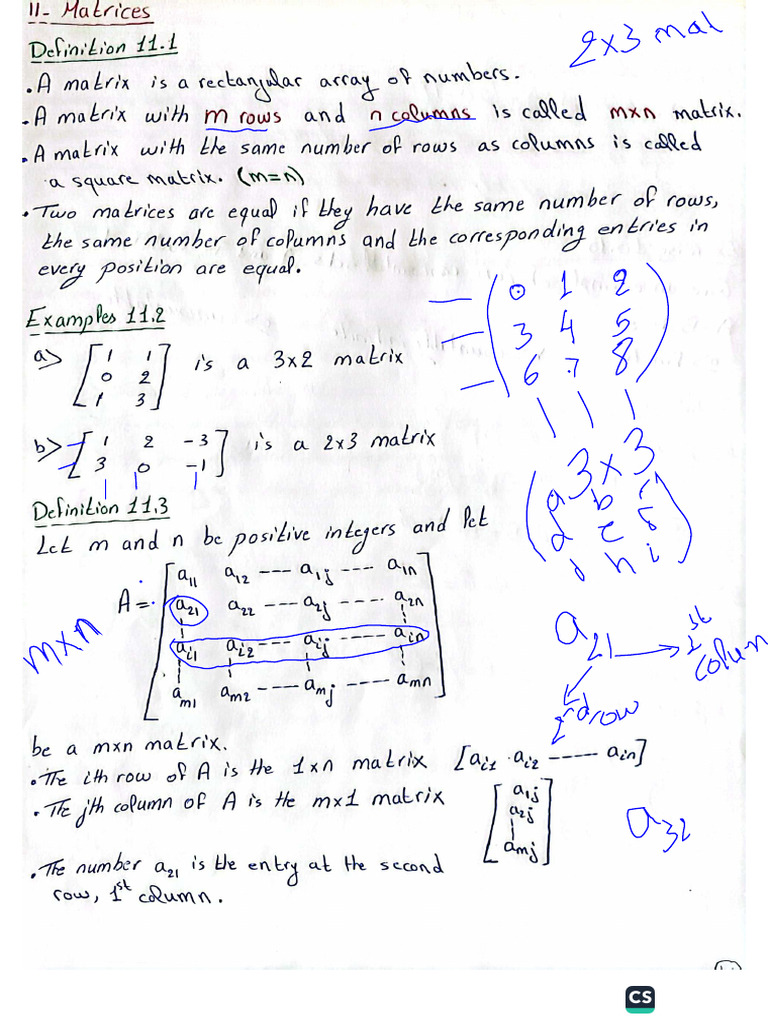 11- Matrices
2x3 mat
Definition 11.1
. A matrix is a rectangular array of numbers.
. A matrix with m rows and n columns is called mxn matrix.
. A matrix with the same number of rows as columns is called
a square matrix. (m=n)
. Two matrices are equal if they have the same number of rows,
the same number of columns and the corresponding entries in
every position are equal.
0 1 2
3 4 5
6 7 8
3x3
Examples 11.2
a> [1 1
0 2
1 3] is a 3x2 matrix
b> [1 2 -3
3 0 -1] is a 2x3 matrix
a b c
d e f
h i
Definition 11.3
Let m and n be positive integers and let
mxn
A = [a11 a12 ---- a1j ---- a1n
a21 a22 ---- a2j ---- a2n
ai1 ai2 ---- aij ---- ain
am1 am2 ---- amj ---- amn]
a21 → 1st
column
2rd row
be a mxn matrix.
. The ith row of A is the 1xn matrix [ai1 . ai2 ----- ain]
. The jth column of A is the mx1 matrix [a1j
a2j
amj]
a32
. The number a21 is the entry at the second
row, 1st column.
CS